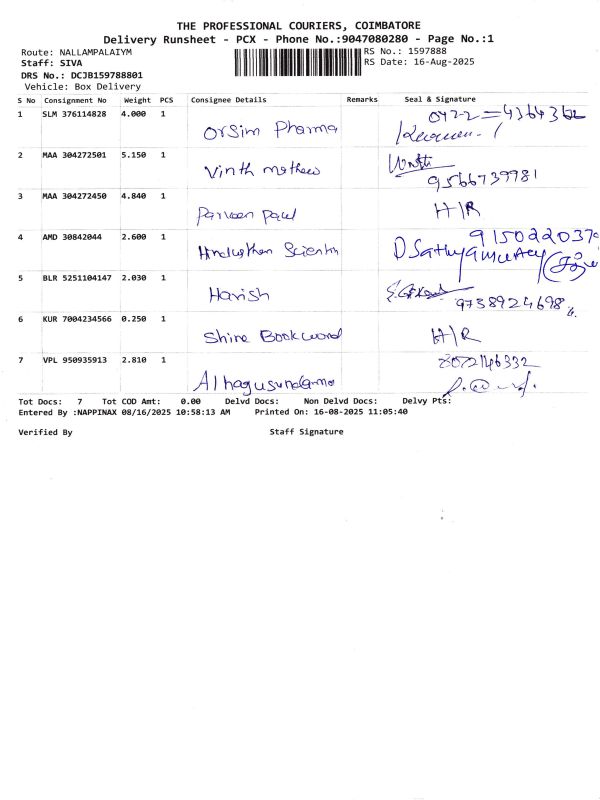 THE PROFESSIONAL COURIERS, COIMBATORE
Delivery Runsheet - PCX - Phone No.:9047080280 - Page No.:1
Route: NALLAMPALAIYM
RS No.: 1597888
Staff: SIVA
RS Date: 16-Aug-2025
DRS No.: DCJB159788801
Vehicle: Box Delivery
S No Consignment No Weight PCS Consignee Details Remarks Seal & Signature
1 SLM 376114828 4.000 1 Orsim Pharma 0422=4364362
2 MAA 304272501 5.150 1 Vinth mathew
9566739981
3 MAA 304272450 4.840 1 Parveen Paul H/R
4 AMD 30842044 2.600 1 Hindusthan Scientin 9150220370
D Sathyamurtey
5 BLR 5251104147 2.030 1 Harish 9738924698
6 KUR 7004234566 0.250 1 Shine Book word H/R
7 VPL 950935913 2.810 1 Alhagusundaram 8072146332
Tot Docs: 7 Tot COD Amt: 0.00 Delvd Docs: Non Delvd Docs: Delvy Pts:
Entered By :NAPPINAX 08/16/2025 10:58:13 AM Printed On: 16-08-2025 11:05:40
Verified By Staff Signature